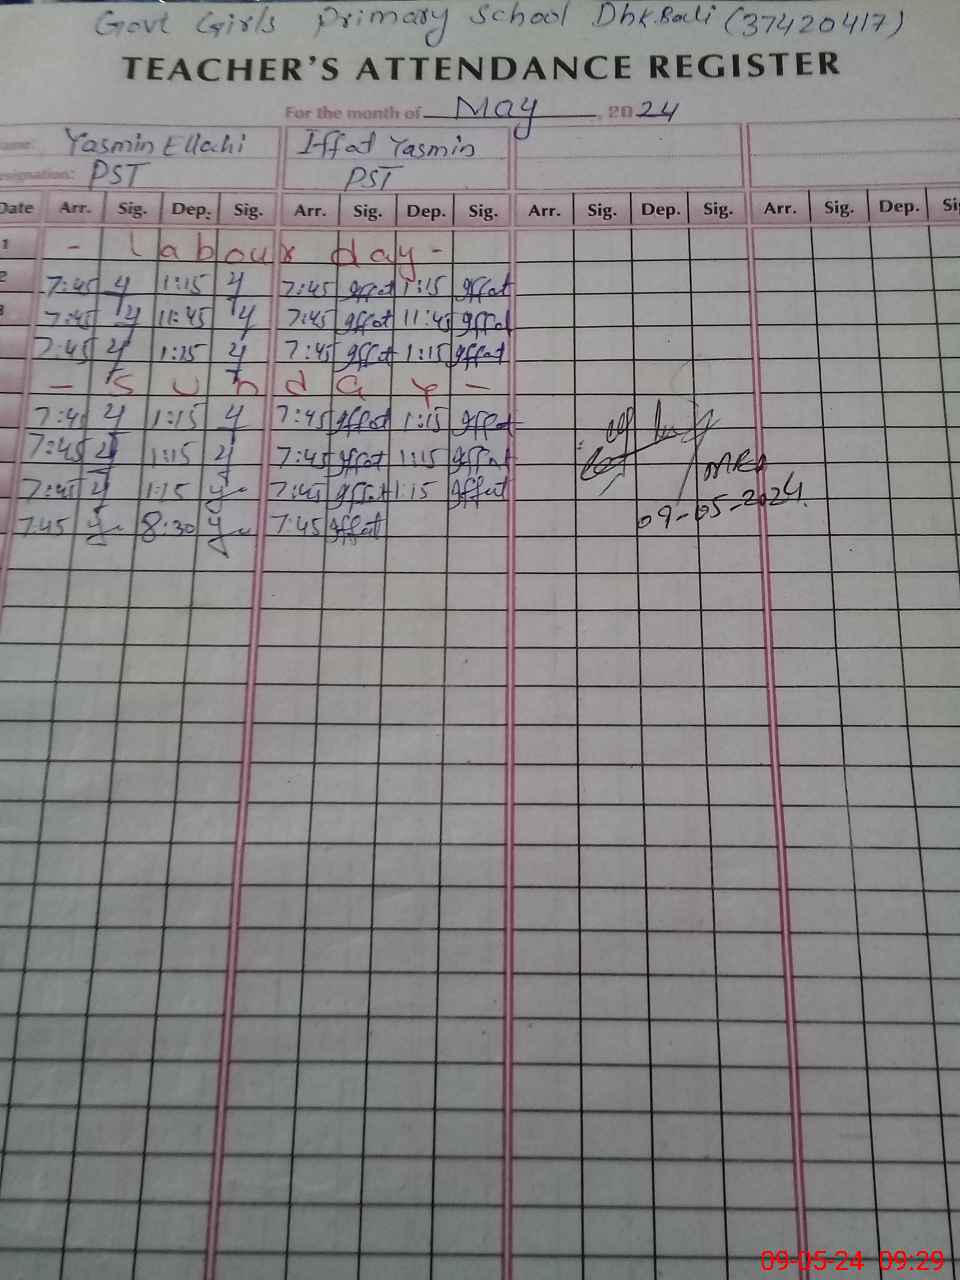 Govt Girls Primary School Dhk.Bali (37420417)
TEACHER'S ATTENDANCE REGISTER
For the month of May, 2024
Name: Yasmin Ellahi Iffat Yasmin
Designation: PST PST
Date Arr. Sig. Dep. Sig. Arr. Sig. Dep. Sig. Arr. Sig. Dep. Sig. Arr. Sig. Dep. Sig
1 - Labour day -
2 7:45 y 1:15 y 7:45 Iffat 1:15 Iffat
3 7:45 y 11:45 y 7:45 Iffat 11:45 Iffat
7:45 y 1:15 y 7:45 Iffat 1:15 Iffat
- Sunday -
7:45 y 1:15 y 7:45 Iffat 1:15 Iffat
7:45 y 1:15 y 7:45 Iffat 1:15 Iffat
7:45 y 1:15 y 7:45 Iffat 1:15 Iffat
7:45 y 8:30 y 7:45 Iffat
MEA
09-05-2024.
09-05-24 09:29